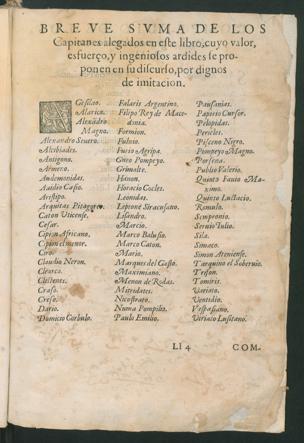 BREVE SVMA DE LOS
Capitanes alegados en este libro, cuyo valor,
esfuerço, y ingeniosos ardides se pro-
ponen en su discurso, por dignos
de imitacion.
AGesilao.
Alarico.
Alexādro
Magno.
Alexandro Seuero.
Alcibiades.
Antigono.
Armeno.
Audemonidas.
Auidio Casio.
Aristipo.
Arquitas Pitagorico.
Caton Vticense.
Cesar.
Cipion Africano.
Cipion el menor.
Ciro.
Claudio Neron.
Clearco.
Clistenes.
Craso.
Creso.
Dario.
Domicio Corbulo.
Falaris Argentino.
Filipo Rey de Mace-
donia.
Formion.
Fuluio.
Furio Agripa.
Gneo Pompeyo.
Grimalte.
Hanon.
Horacio Cocles.
Leonidas.
Lipone Siracusano.
Lisandro.
Marcio.
Marco Balusio.
Marco Caton.
Mario.
Marques del Gasto.
Maximiano.
Menon de Rodas.
Mitridates.
Nicostrato.
Numa Pompilio.
Paulo Emilio.
Pausanias.
Papirio Cursor.
Pelopidas.
Pericles.
Pisceno Nigro.
Pompeyo Magno.
Porsena.
Publio Valerio.
Quinto Fauio Ma-
ximo.
Quinto Luctacio.
Romulo.
Sempronio.
Seruio Iulio.
Sila.
Simaco.
Simon Ateniense.
Tarquino el Soberuio.
Treson.
Tomiris.
Variato.
Ventidio.
Vespasiano.
Viriato Lusitano.
Ll 4
COM-